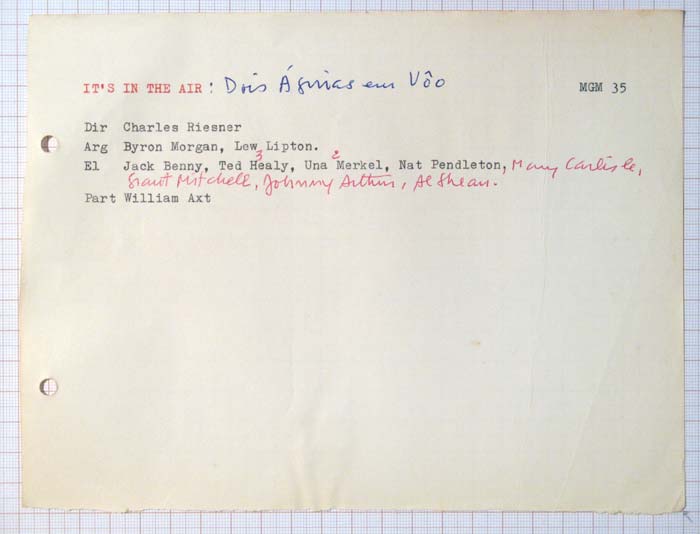 IT'S IN THE AIR : Dois Águias em Vôo MGM 35
Dir Charles Riesner
Arg Byron Morgan, Lew Lipton.
3 2
El Jack Benny, Ted Healy, Una Merkel, Nat Pendleton, Mary Carlisle,
Grant Mitchell, Johnny Arthur, Al Shean.
Part William Axt